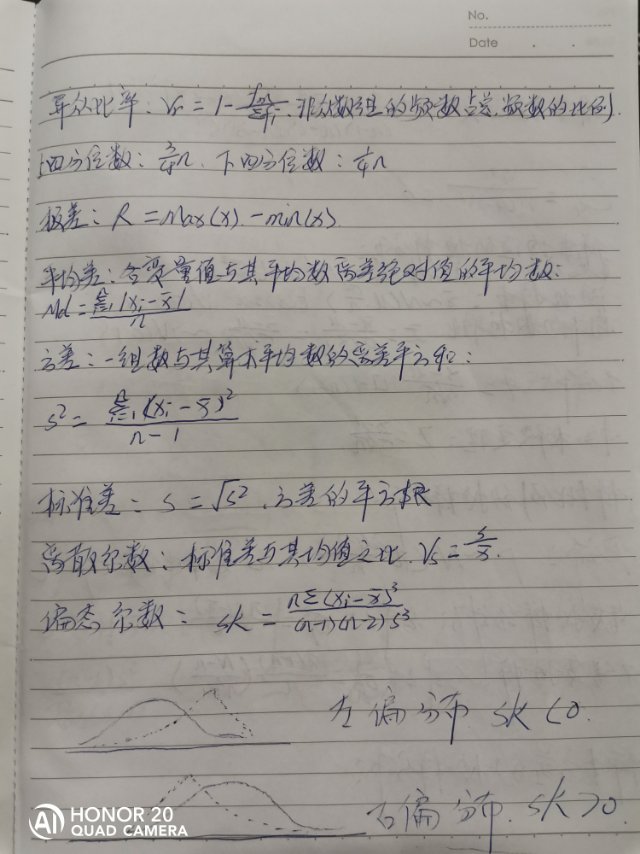 No.
Date
异众比率: Vr = 1 - fm/Σfi. 非众数组的频数占总频数的比例.
上四分位数: 3/4 n. 下四分位数: 1/4 n
极差: R = Max(x) - min(x)
平均差: 各变量值与其平均数离差绝对值的平均数:
Md = Σ|xi - x̄| / n
方差: 一组数与其算术平均数的离差平方和:
s² = Σ(xi - x̄)² / n-1
标准差: s = √s². 方差的平方根
离散系数: 标准差与其均值之比. Vs = s/x̄.
偏态系数: SK = nΣ(xi - x̄)³ / (n-1)(n-2)s³
左偏分布 SK<0.
右偏分布. SK>0.
HONOR 20
QUAD CAMERA